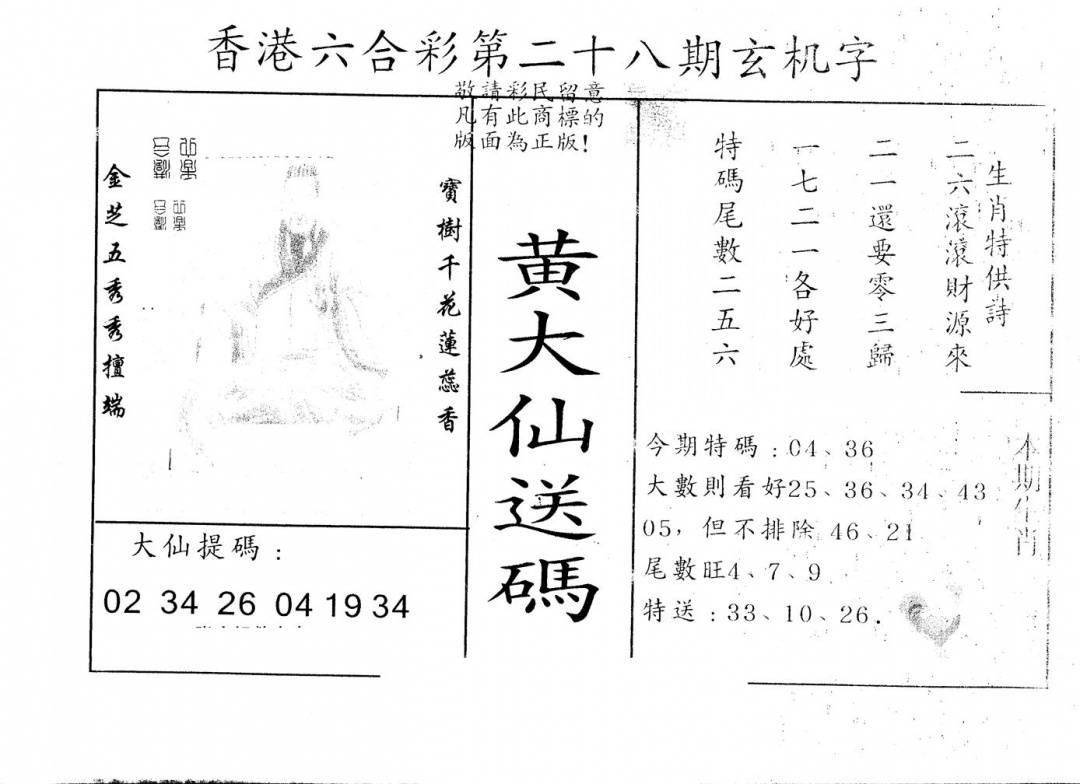 香港六合彩第二十八期玄机字
敬請彩民留意
凡有此商標的
版面為正版!
寶樹千花蓮蕊香
金芝五秀秀擅端
大仙提碼:
02 34 26 04 19 34
黄大仙送碼
生肖特供詩
二六滾滾財源來
二一還要零三歸
一七二一各好處
特碼尾數二五六
本期生肖
今期特碼:04、36
大數則看好25、36、34、43
05,但不排除 46、21
尾數旺4、7、9
特送:33、10、26.